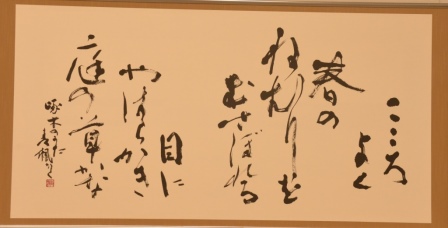 こころ
よく
春の
ねむりを
むさぼれる
目に
やはらかき
庭の草かな
啄木のうた